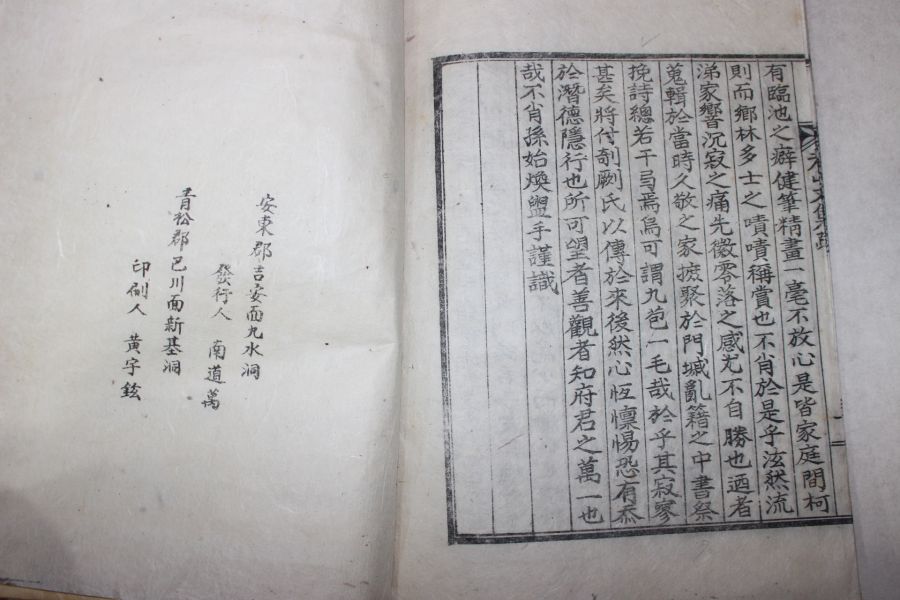 有臨池之癖健筆精畫一毫不放心是皆家庭間柯
則而鄉林多士之嘖嘖稱賞也不肖於是乎泫然流
涕家響沉寂之痛先徽零落之感尤不自勝也迺者
蒐輯於當時久敬之家摭聚於門城亂籍之中書祭
挽詩總若干弓焉烏可謂九苞一毛哉於乎其寂寥
甚矣將付剞劂氏以傳於來後然心恆懍惕恐有忝
於潛德隱行也所可望者善觀者知府君之萬一也
哉不肖孫始煥盥手謹識
安東郡吉安面九水洞
發行人 南道萬
青松郡巴川面新基洞
印刷人 黃宇鉉